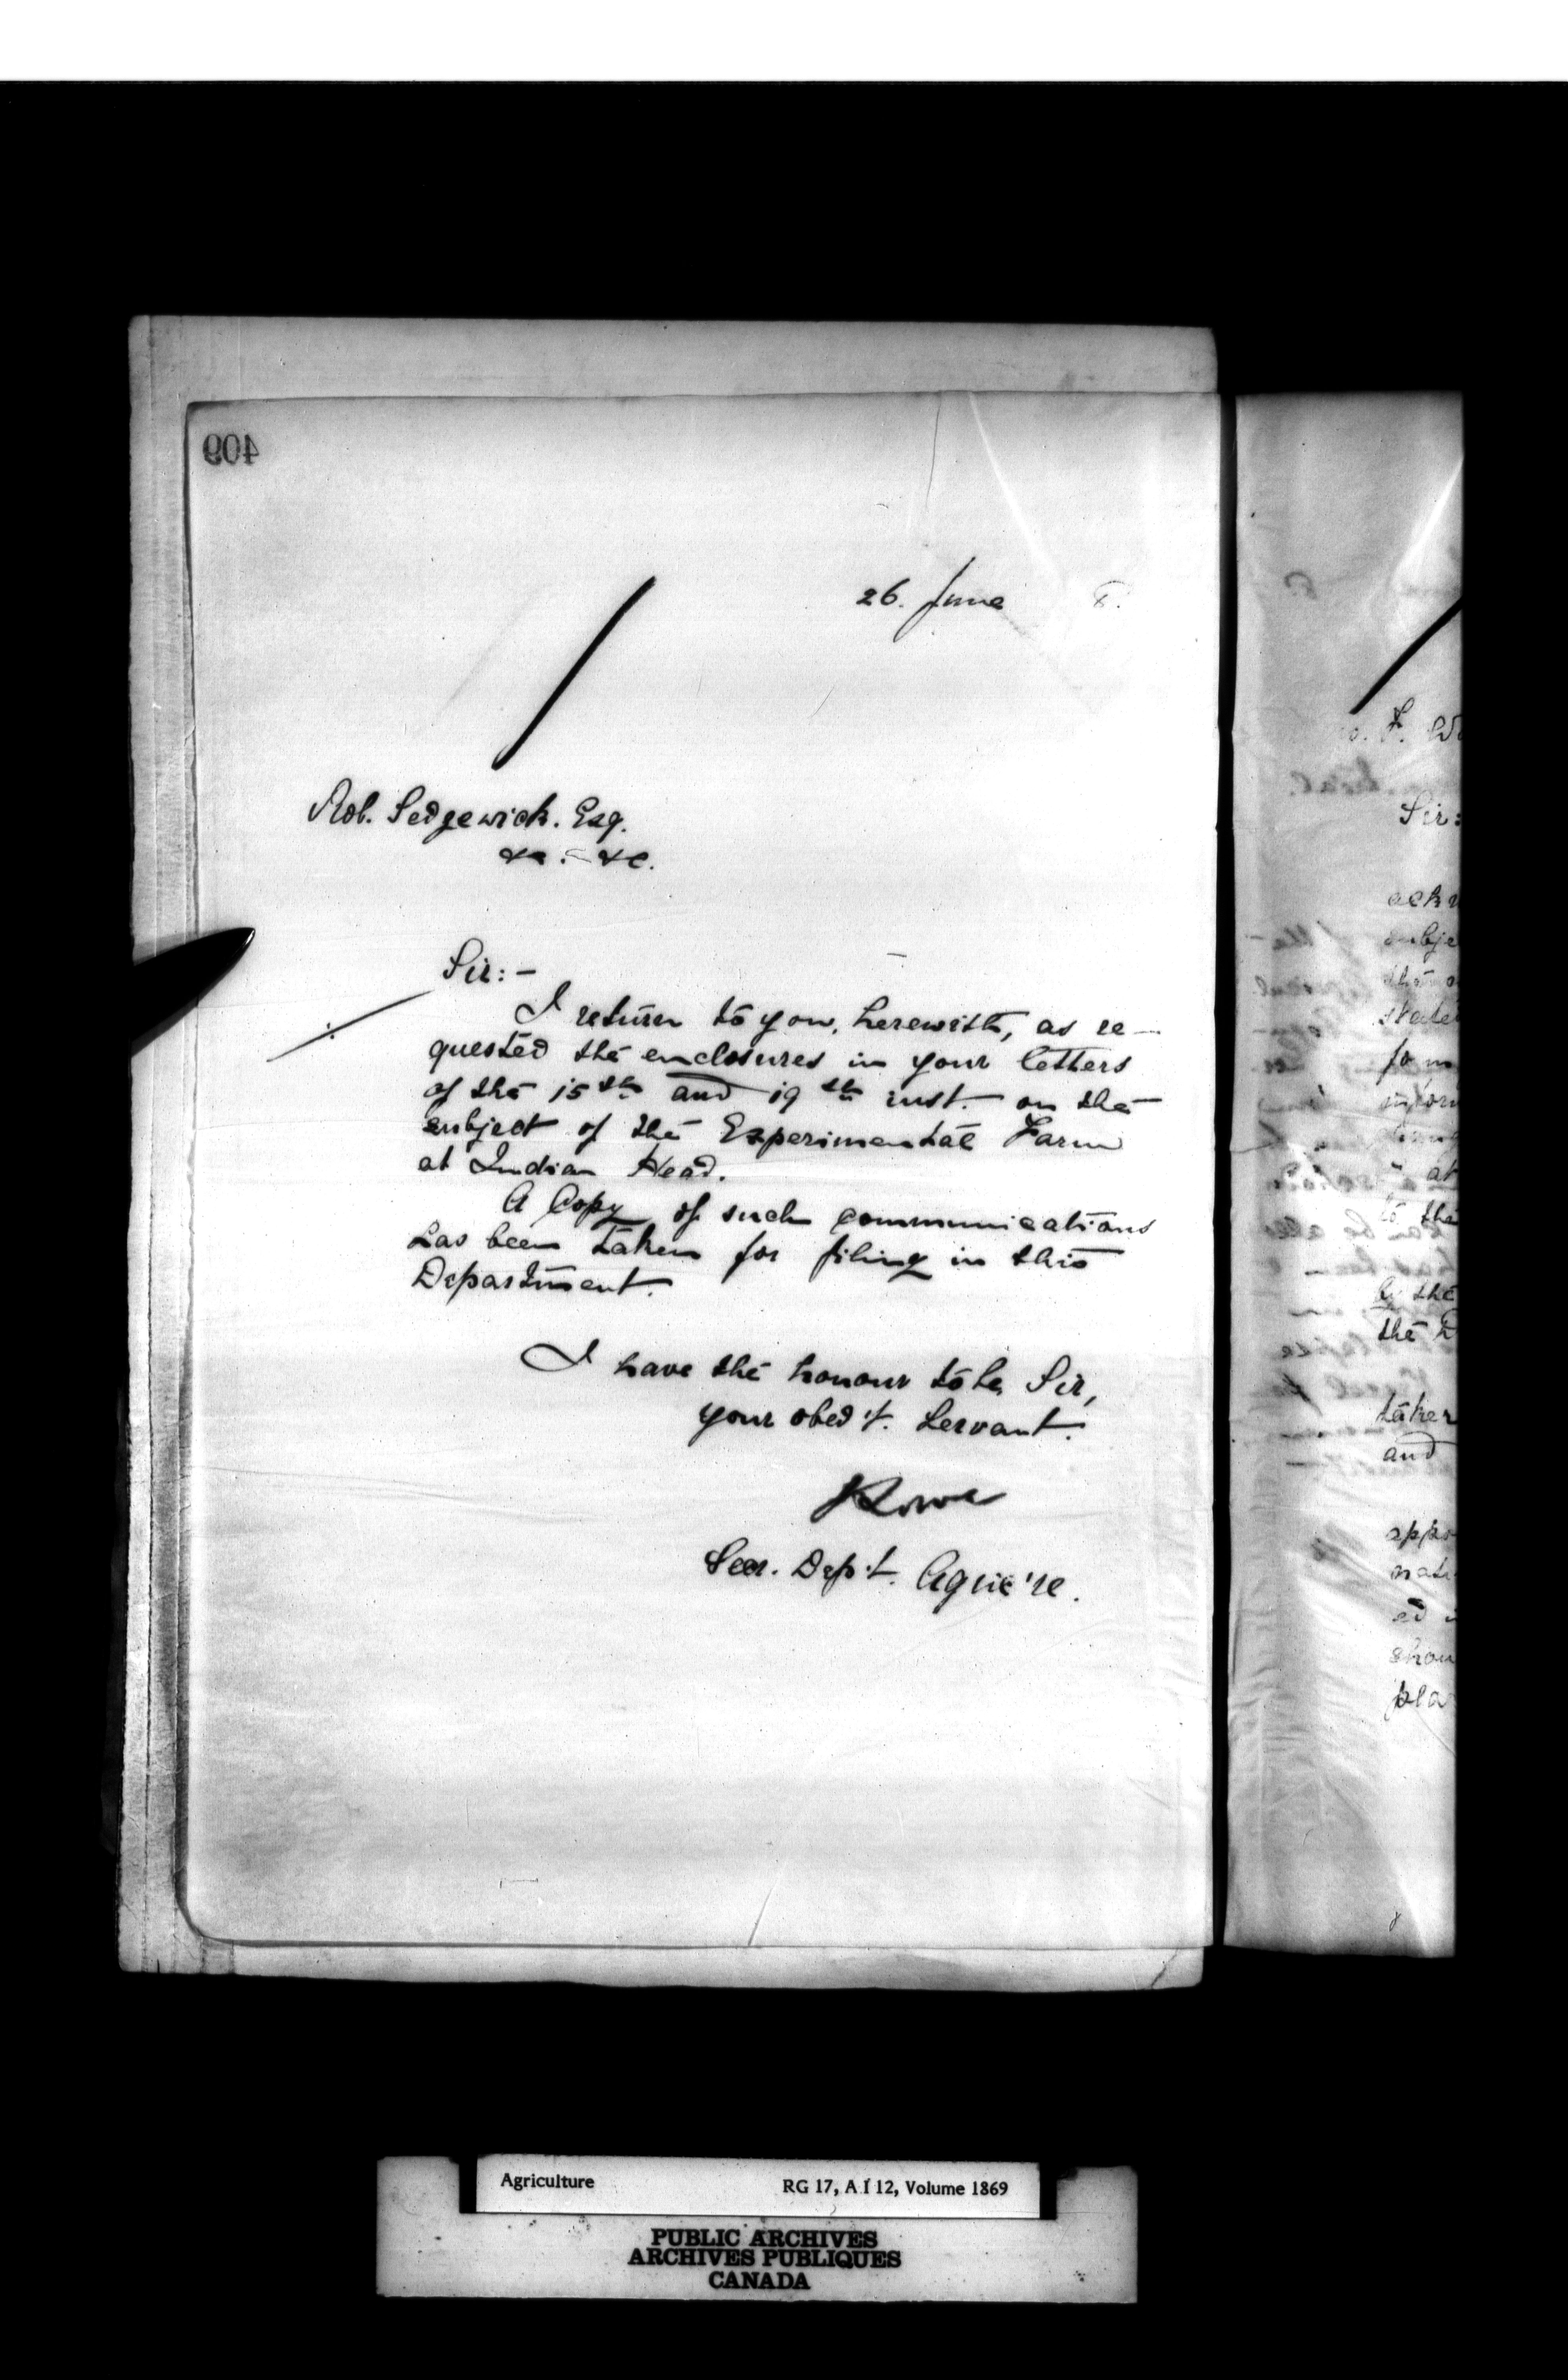 409
26. June 8.
Rob. Sedgewick. Esq.
&c. - &c.
Sir: -
I return to you, herewith, as re-
quested the enclosures in your letters
of the 15th and 19th inst. on the
subject of the Experimental Farm
at Indian Head.
A Copy of such communications
has been taken for filing in this
Department.
I have the honour to be, Sir,
your obed't. Servant.
JLowe
Secr. Dep't. Agric're.
Sir:
the
at
to the
by the
the D
taken
and
Agriculture RG 17, A I 12, Volume 1869
PUBLIC ARCHIVES
ARCHIVES PUBLIQUES
CANADA